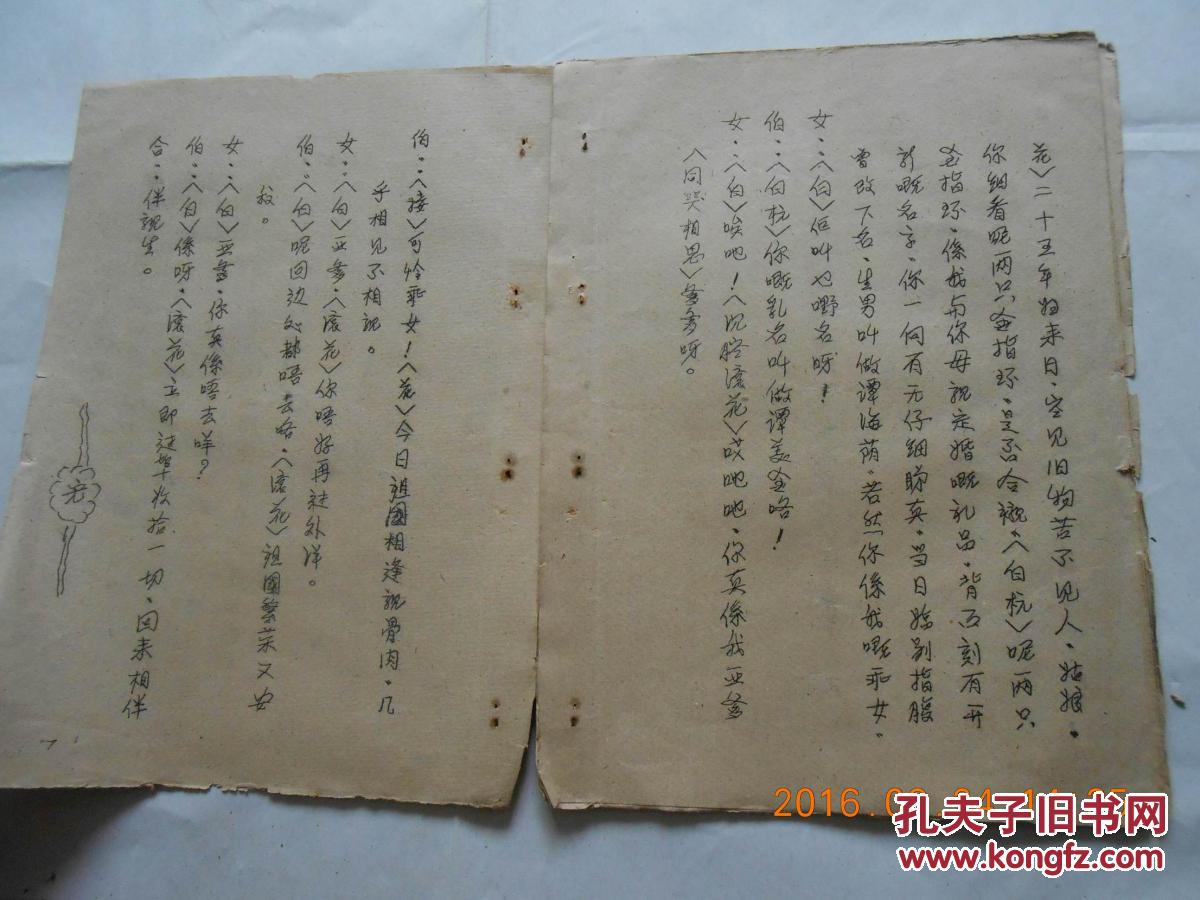 花〉二十五年归来日、空见旧物苦不见人、姑娘、
你细看呢两只金指环、是否合衬、〈白杭〉呢两只
金指环、係我与你母亲定婚嘅礼品、背面刻有开
嘅名字、你一向有无仔细睇真、当日临别指腹
曾改下名、生男叫做谭海荫、若然你係我嘅乖女、
女：〈白〉佢叫乜嘢名呀！
伯：〈白杭〉你嘅乳名叫做谭美金咯！
女：〈白〉唉吔！〈沉腔滚花〉哎吔吔、你真係我亚爹
〈同哭相思〉爹爹呀。
伯：〈接〉可怜乖女！〈花〉今日祖國相逢親骨肉、几
乎相见不相親。
女：〈白〉亚爹、〈滚花〉你唔好再过外洋。
伯：〈白〉呢回边处都唔去咯、〈滚花〉祖國繁荣又安
女：〈白〉亚爹、你真係唔去咩？
伯：〈白〉係呀、〈滚花〉立即过埠收拾一切、回来相伴
合：伴親生。
完
2016.0
孔夫子旧书网
www.kongfz.com